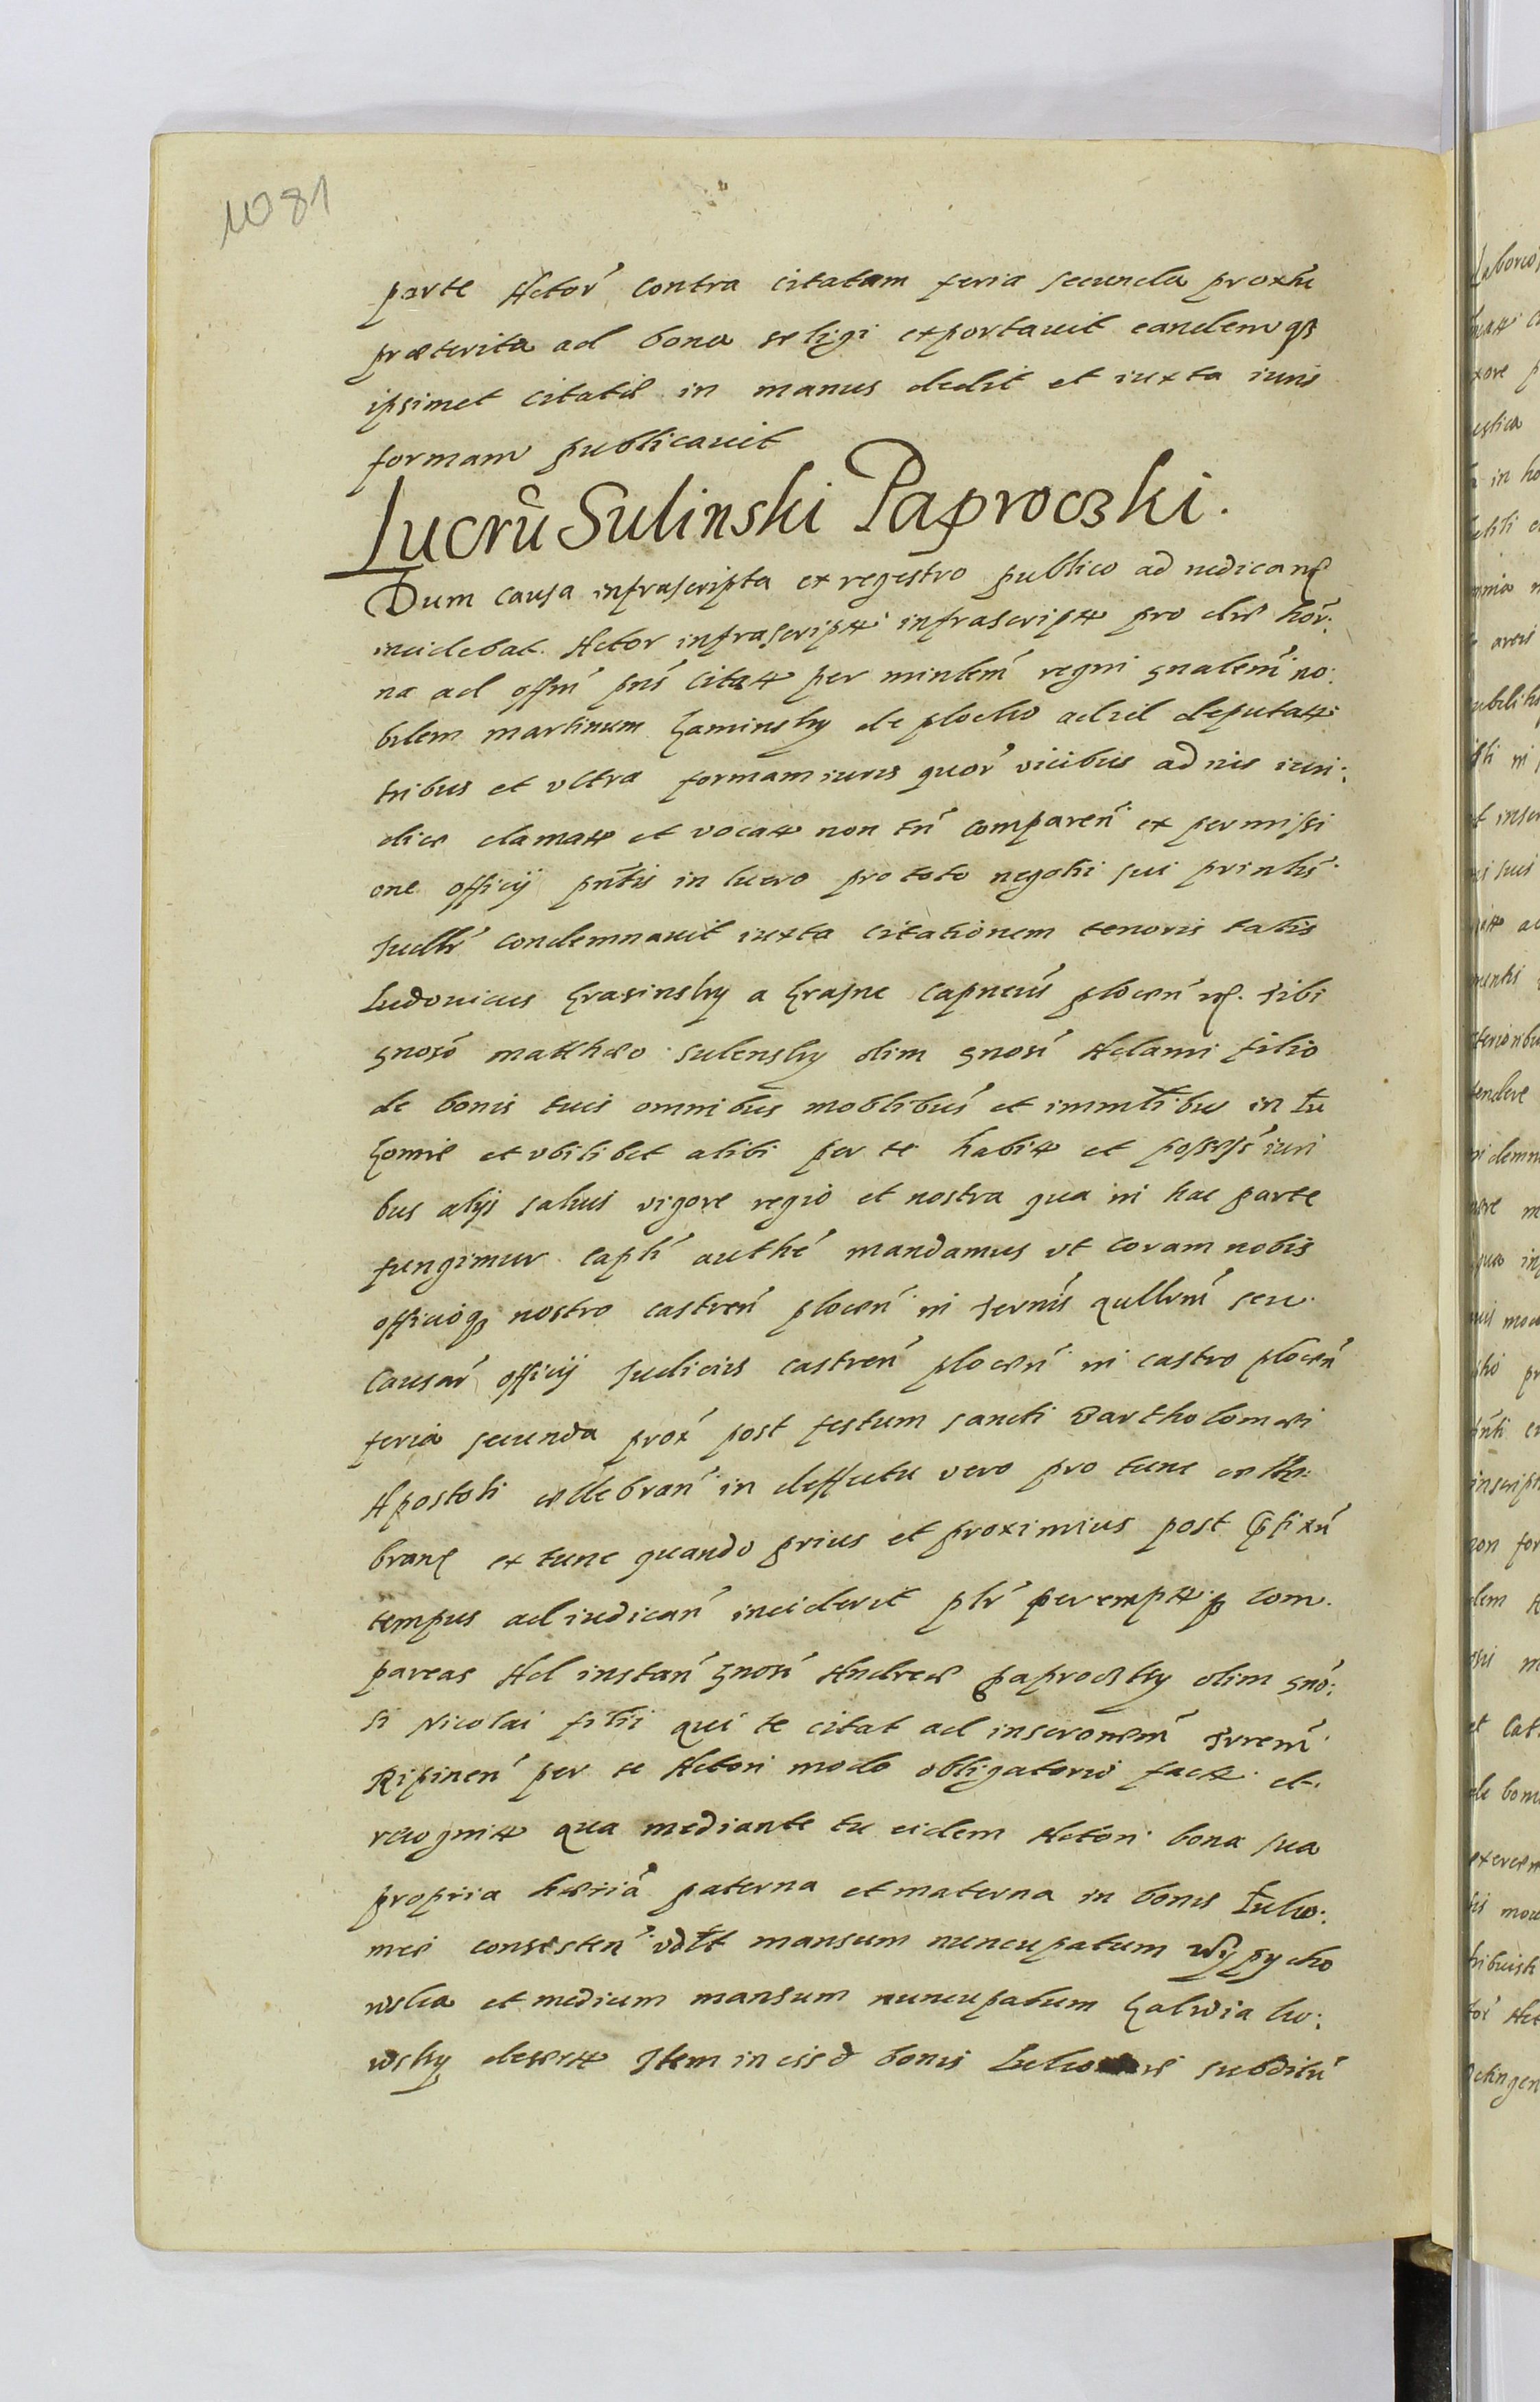 1081
parte Actor contra citatam feria secunda proxim
præterita ad bona seligi exportauit eandemq3
ipsimet citatæ in manus dedit et iuxta iuris
formam publicauit
Lucrū Sulinski Paproczki.
Dum causa infrascripta ex regestro publico ad iudicand
incidebat. Actor infrascript infrascript pro die hor:
na ad offm pns citat per minlem regni gnalem no:
bilem martinum Kaminsky de plocko ad id deputat
tribus et vltra formam iuris quor vicibus ad nis iuri:
dice clamat et vocat non tn comparen ex permissi
one officij pntis in lucro pro toto negotii sui prinlis
Judlr condemnauit iuxta citationem tenoris talis
Ludouicus Krasinsky a Krasne Capneus plocen sibi
gnoso matthæo sulensky olim gnosi Adami filio
de bonis tuis omnibus moblibus et immlibus in Lu
komie et vbilibet alibi per te habit et possess iuri
bus alijs saluis vigore regio et nostra qua in hac parte
fungimur capli authe mandamus vt coram nobis
officioq3 nostro castren plocen in termis qullrm seu
causar officij Judicius castren plocen in castro plocen
feria secunda prox post festum sancti Bartholomæi
Apostoli celebran in deffectu vero pro tunc celle:
brand ex tunc quando prius et proximius post præfixu
tempus ad iudican inciderit plr perempt q3 com
pareas Ad instan gnosi Andreæ paprocky olim gno:
si Nicolai filii qui te citat ad inscronem trrem
Ripinen per te Actori modo obligatorio fact et
recognit qua mediante tu eidem Actori bona sua
propria hæria paterna et materna in bonis Luko:
mie consisten vdlt mansum nuncupatum Wypycho
wska et medium mansum nuncupatum Kalwia ko:
wsky desert Item in eisd bonis Lukomie subditu